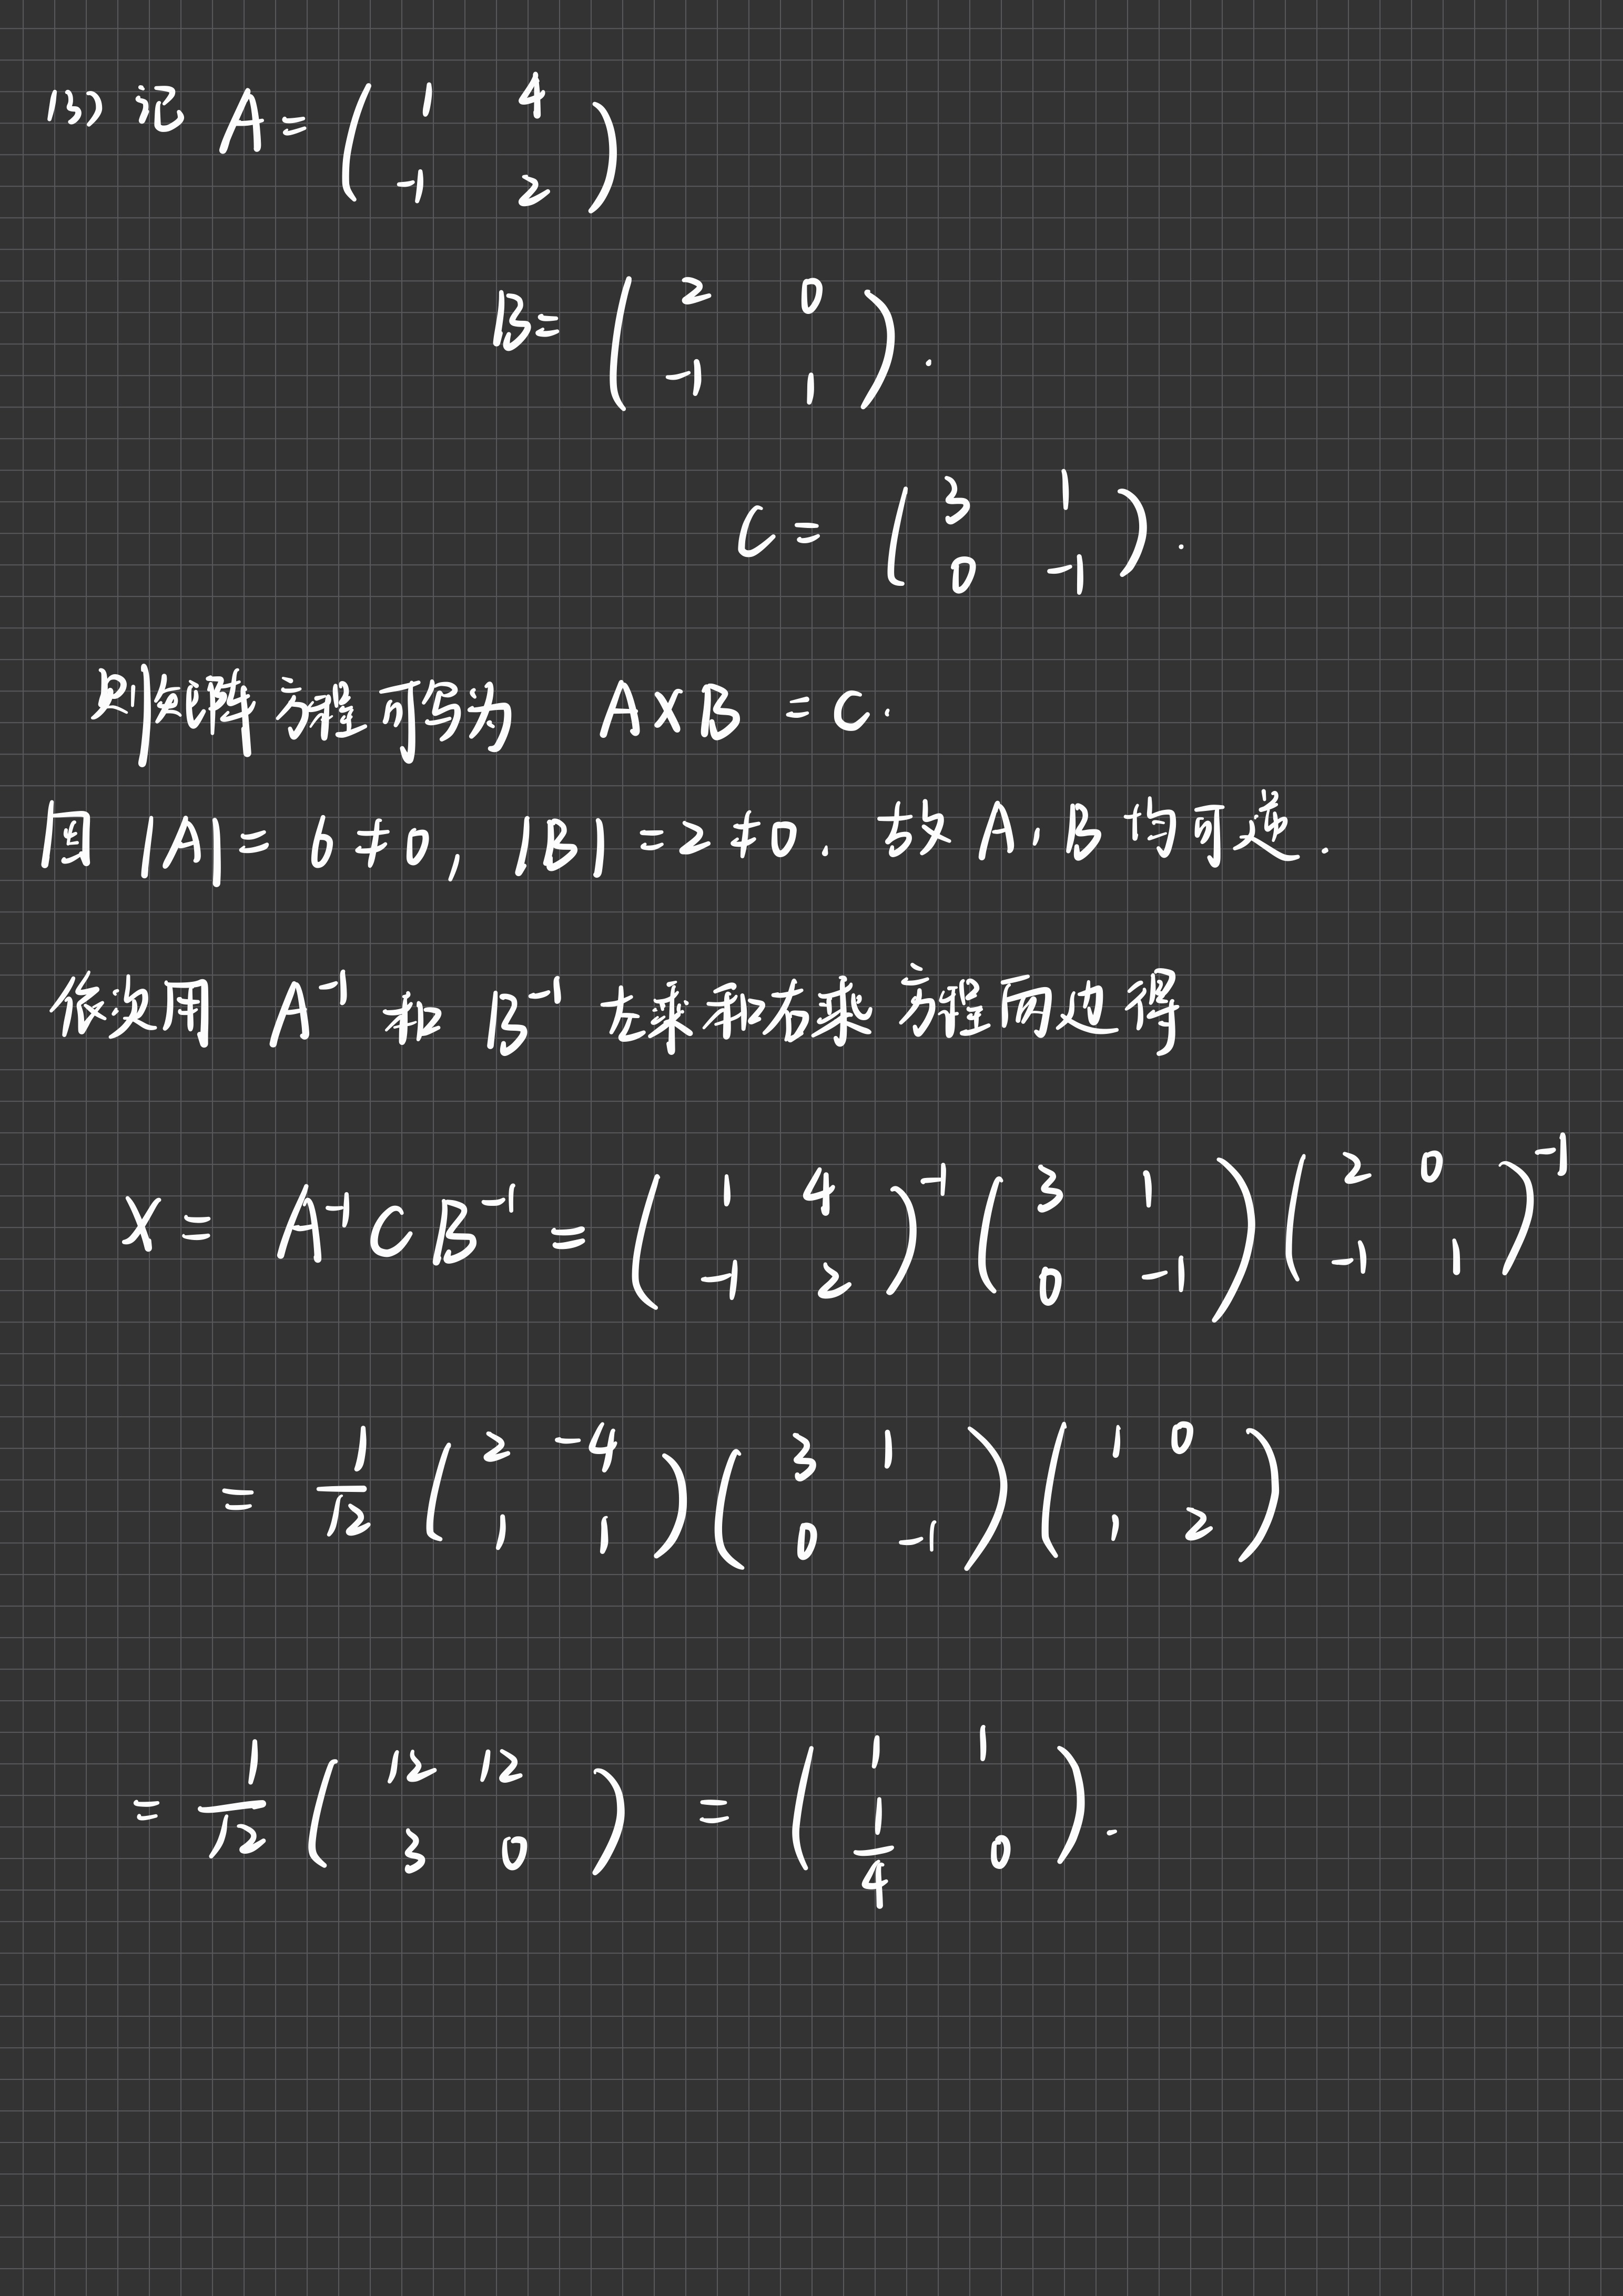 (3) 记 A = ( 1 4 ; -1 2 )
B = ( 2 0 ; -1 1 ).
C = ( 3 1 ; 0 -1 ).
则矩阵方程可写为 AXB = C.
因 |A| = 6 ≠ 0, |B| = 2 ≠ 0. 故 A, B 均可逆.
依次用 A⁻¹ 和 B⁻¹ 左乘和右乘方程两边得
X = A⁻¹CB⁻¹ = ( 1 4 ; -1 2 )⁻¹ ( 3 1 ; 0 -1 ) ( 2 0 ; -1 1 )⁻¹
= 1/12 ( 2 -4 ; 1 1 ) ( 3 1 ; 0 -1 ) ( 1 0 ; 1 2 )
= 1/12 ( 12 12 ; 3 0 ) = ( 1 1 ; 1/4 0 ).